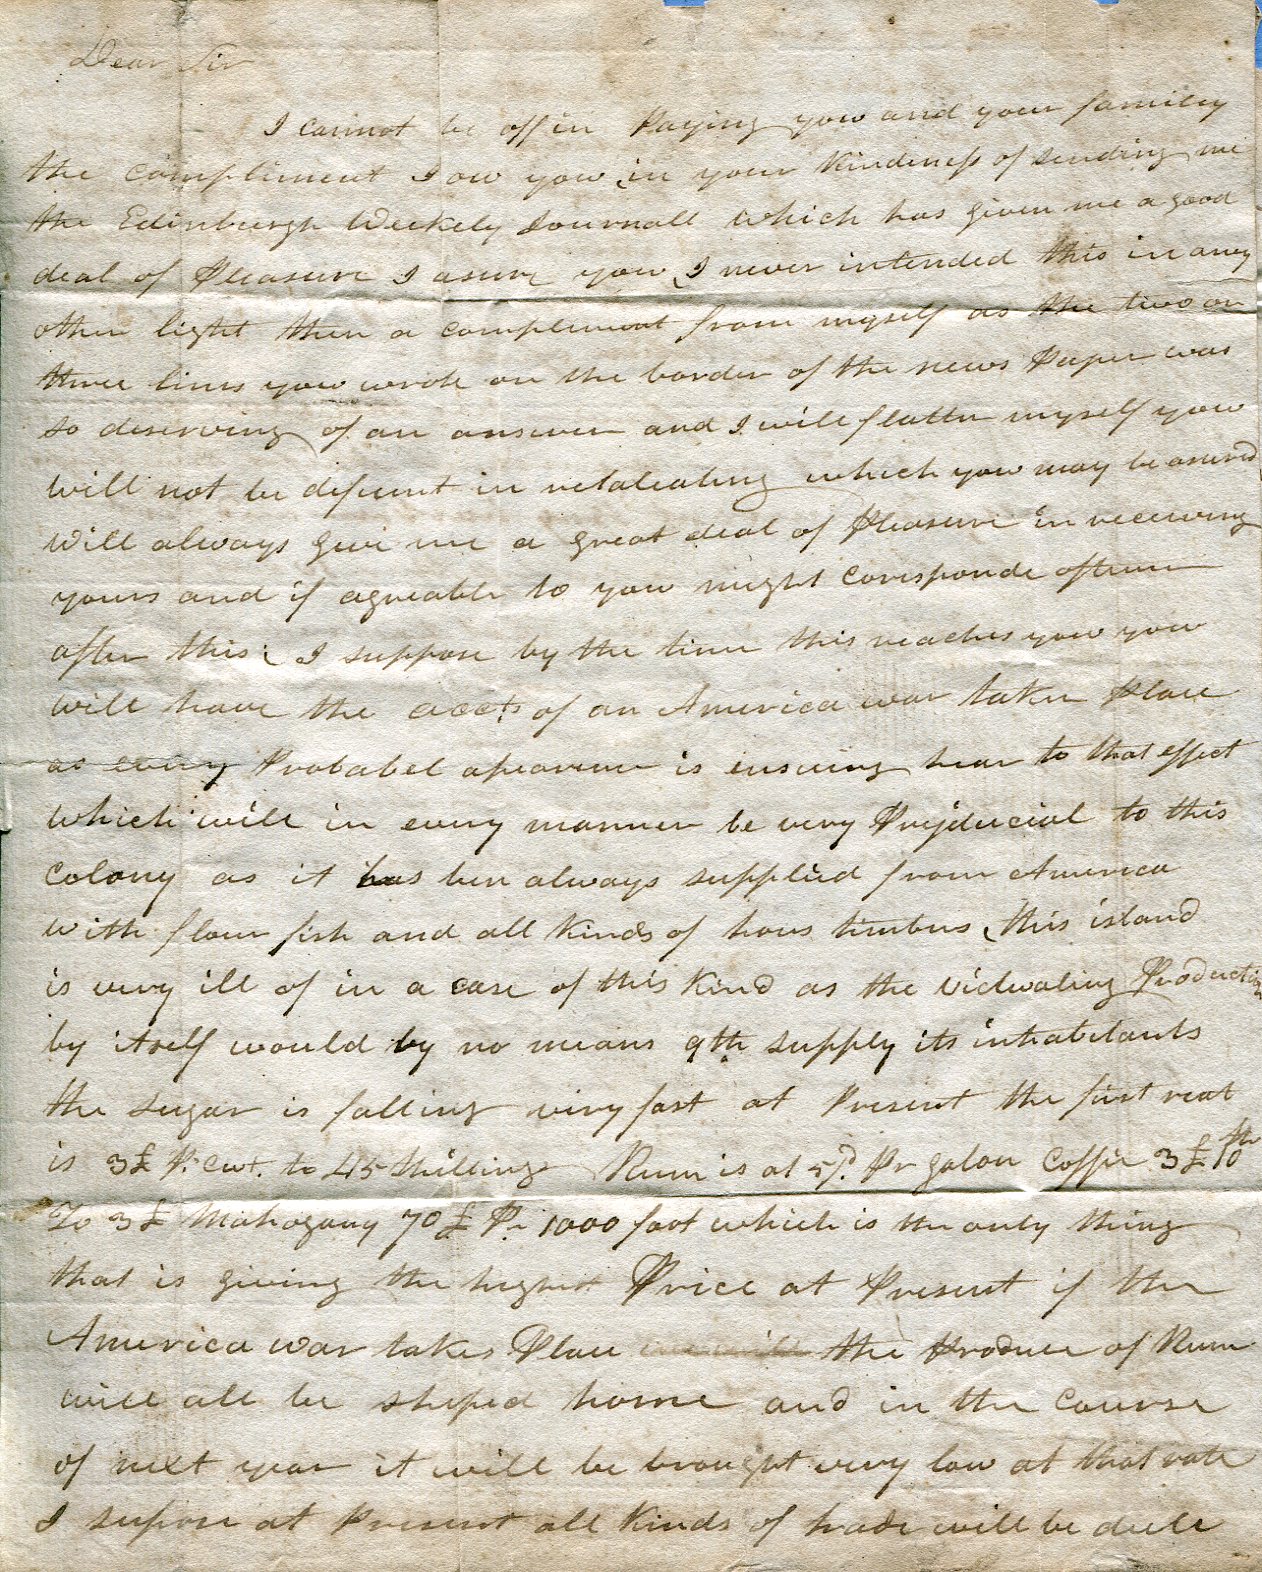 Dear Sir
I cannot be off in Paying yow and your family
the compliment I ow yow in your Kindeness of sending me
the Edinburgh Weekely Journall which has given me a good
deal of Pleasure I asure yow I never intended this in any
other light then a complement from myself as the two or
three lines yow wrote on the border of the news Paper was
so deserving of an answer and I will flatter myself yow
will not be deficent in retaleating which yow may be asured
Will always give me a great deal of Pleasure in receiving
yours and if agreable to yow might corisponde oftener
after this I suppose by the time this reaches yow yow
will have the acct's of an America war taken Place
as every Probabel apearence is ensuing hear to that effect
which will in every manner be very Prejducial to this
colony as it has ben always supplied from America
with flour fish and all Kinds of hous timbers this island
is very ill of in a case of this Kind as the Vidwaling Production
by itself would by no means 9th supply its inhabitants
the sugar is falling very fast at Present the first reat
is 3£ Pr. Cwt. to 45 Shillings Rum is at 5/. Pr galon Coffie 3£ 10
To 3£ Mahogany 70£ Pr. 1000 foot which is the only thing
that is giving the highest Price at Present if the
America war takes Place the Produce of Rum
will all be shiped home and in the Course
of next year it will be brought very low at that rate
I supose at Present all Kinds of trade will be dull